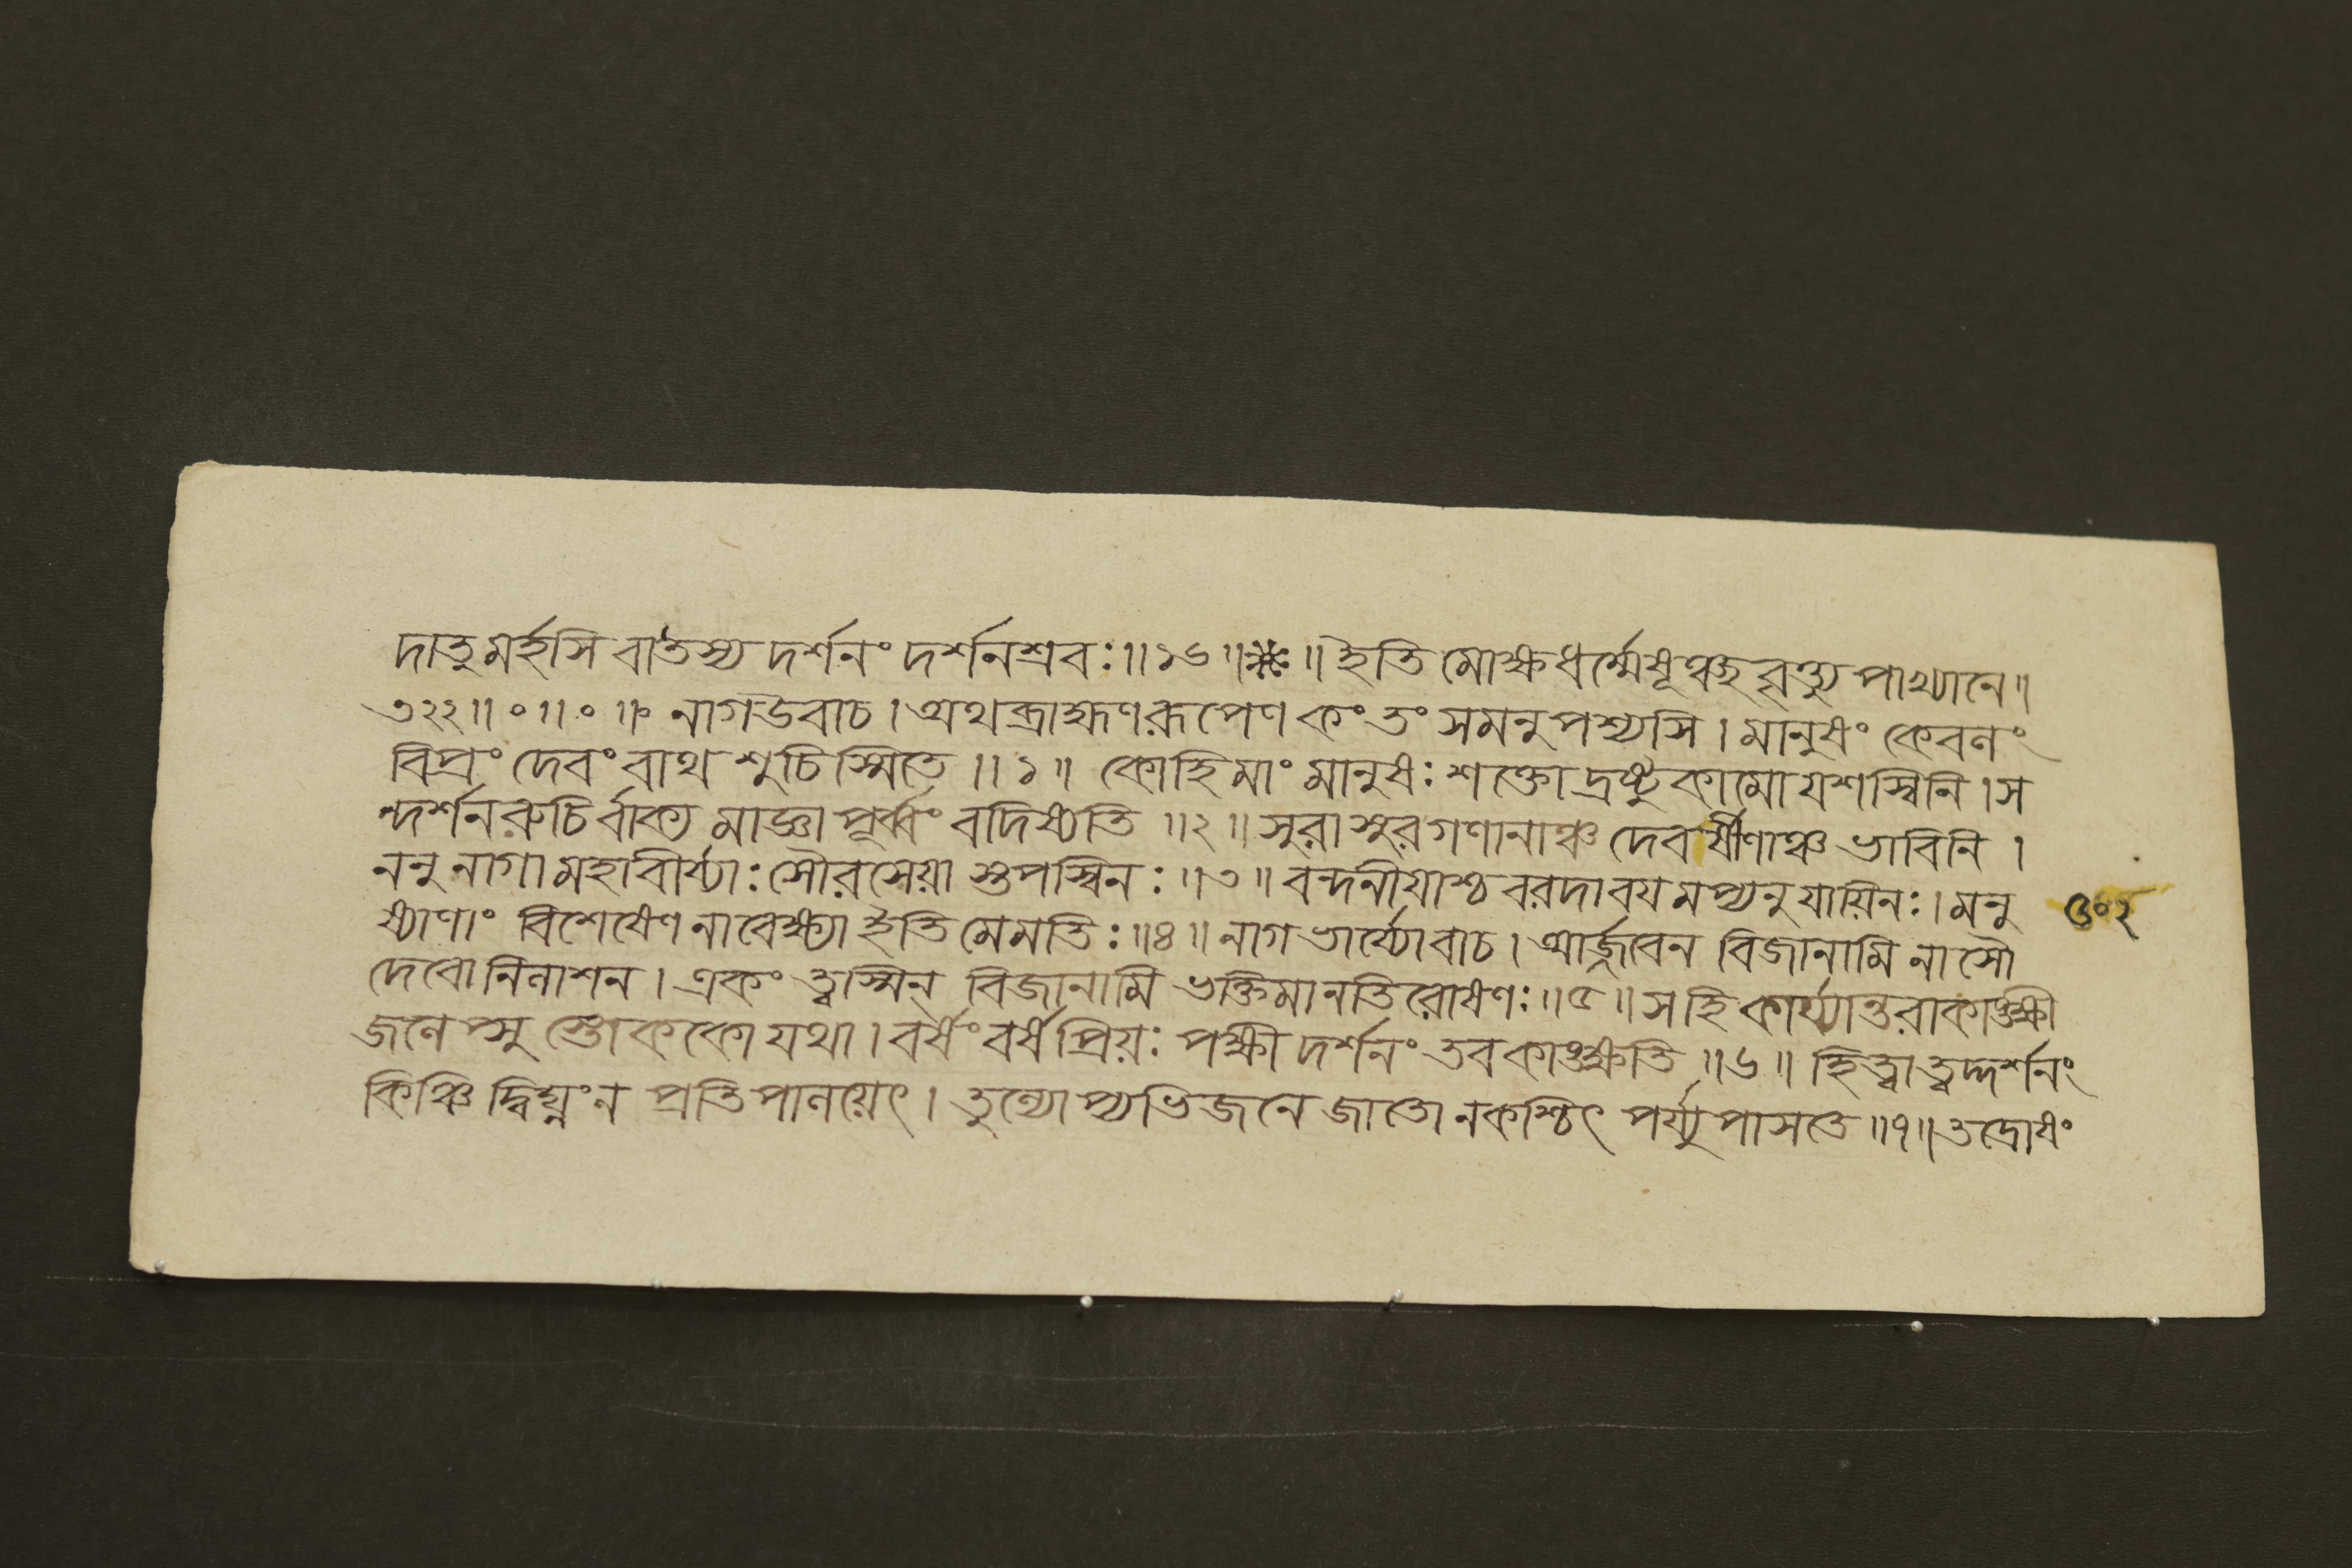 দাতুমর্হসি বা তস্য দর্শনং দর্শনশ্রবঃ ॥ ১৬ ॥ ※ ॥ ইতি মোক্ষধর্ম্মেষূঞ্ছবৃত্ত্যুপাখ্যানে ॥
৩২২ ॥ ০ ॥ ০ ॥ নাগ উবাচ । অথ ব্রাহ্মণরূপেণ কং তং সমনুপশ্যসি । মানুষং কেবলং
বিপ্রং দেবং বাথ শুচিস্মিতে ॥ ১ ॥ কোহি মাং মানুষঃ শক্তো দ্রষ্টুকামো যশস্বিনি । স
ন্দর্শনরুচির্বাক্যমাজ্ঞাপূর্ব্বং বদিষ্যতি ॥ ২ ॥ সুরাসুরগণানাঞ্চ দেবর্ষীণাঞ্চ ভাবিনি ।
ননু নাগা মহাবীর্য্যাঃ সৌরসেয়াস্তপস্বিনঃ ॥ ৩ ॥ বন্দনীয়াশ্চ বরদা বয়মপ্যনুযায়িনঃ । মনু
ষ্যাণাং বিশেষেণ নাবেক্ষ্যা ইতি মে মতিঃ ॥ ৪ ॥ নাগভার্য্যোবাচ । আর্জ্জবেন বিজানামি নাসৌ
দেবোনিলাশন । একং ত্বস্মিন্ বিজানামি ভক্তিমানতিরোষণঃ ॥ ৫ ॥ স হি কার্য্যান্তরাকাঙ্ক্ষী
জলেপ্সু স্তোককো যথা । বর্ষং বর্ষপ্রিয়ঃ পক্ষী দর্শনং তব কাঙ্ক্ষতি ॥ ৬ ॥ হিত্বা ত্বদ্দর্শনং
কিঞ্চিদ্বিঘ্নং ন প্রতিপালয়েৎ । তুল্যোপ্যভিজনে জাতো ন কশ্চিৎ পর্য্যুপাসতে ॥ ৭ ॥ তদ্রোষং
৬০২